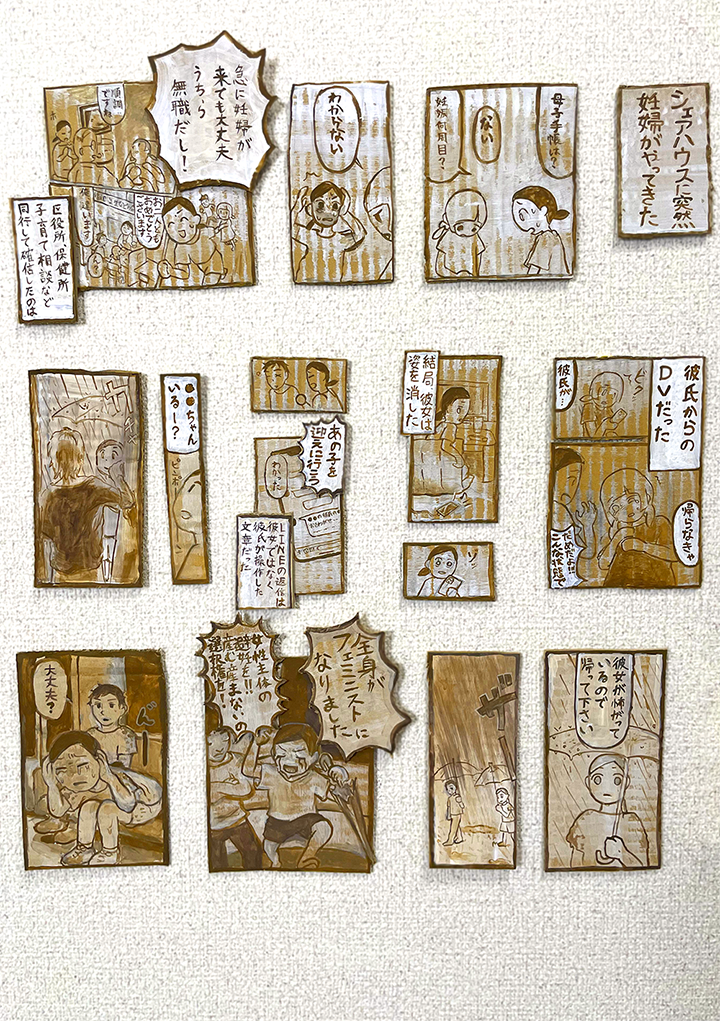 シェアハウスに突然
妊婦がやってきた
母子手帳は?
ない
妊娠何ヶ月目?
わからない
急に妊婦が
来ても大丈夫
うちら
無職だし!
順調
ですね
ホ
お二人とも
おめでとう
ございます
違います
区役所、保健所
子育て相談など
同行して確信したのは
彼氏からの
DVだった
彼氏が…
帰らなきゃ
だめだよ!!
こんな状態で
結局、彼女は
姿を消した
ゾッ
あの子を
迎えに行こう
わかった
LINEの返信は
彼女ではなく
彼氏が操作した
文章だった
●●ちゃん
いるー?
ピンポーン
彼女が怖がって
いるので
帰って下さい
ザー
全身が
フェミニストに
なりました
女性主体の
避妊を!!
産む産まないの
選択権を!
大丈夫?